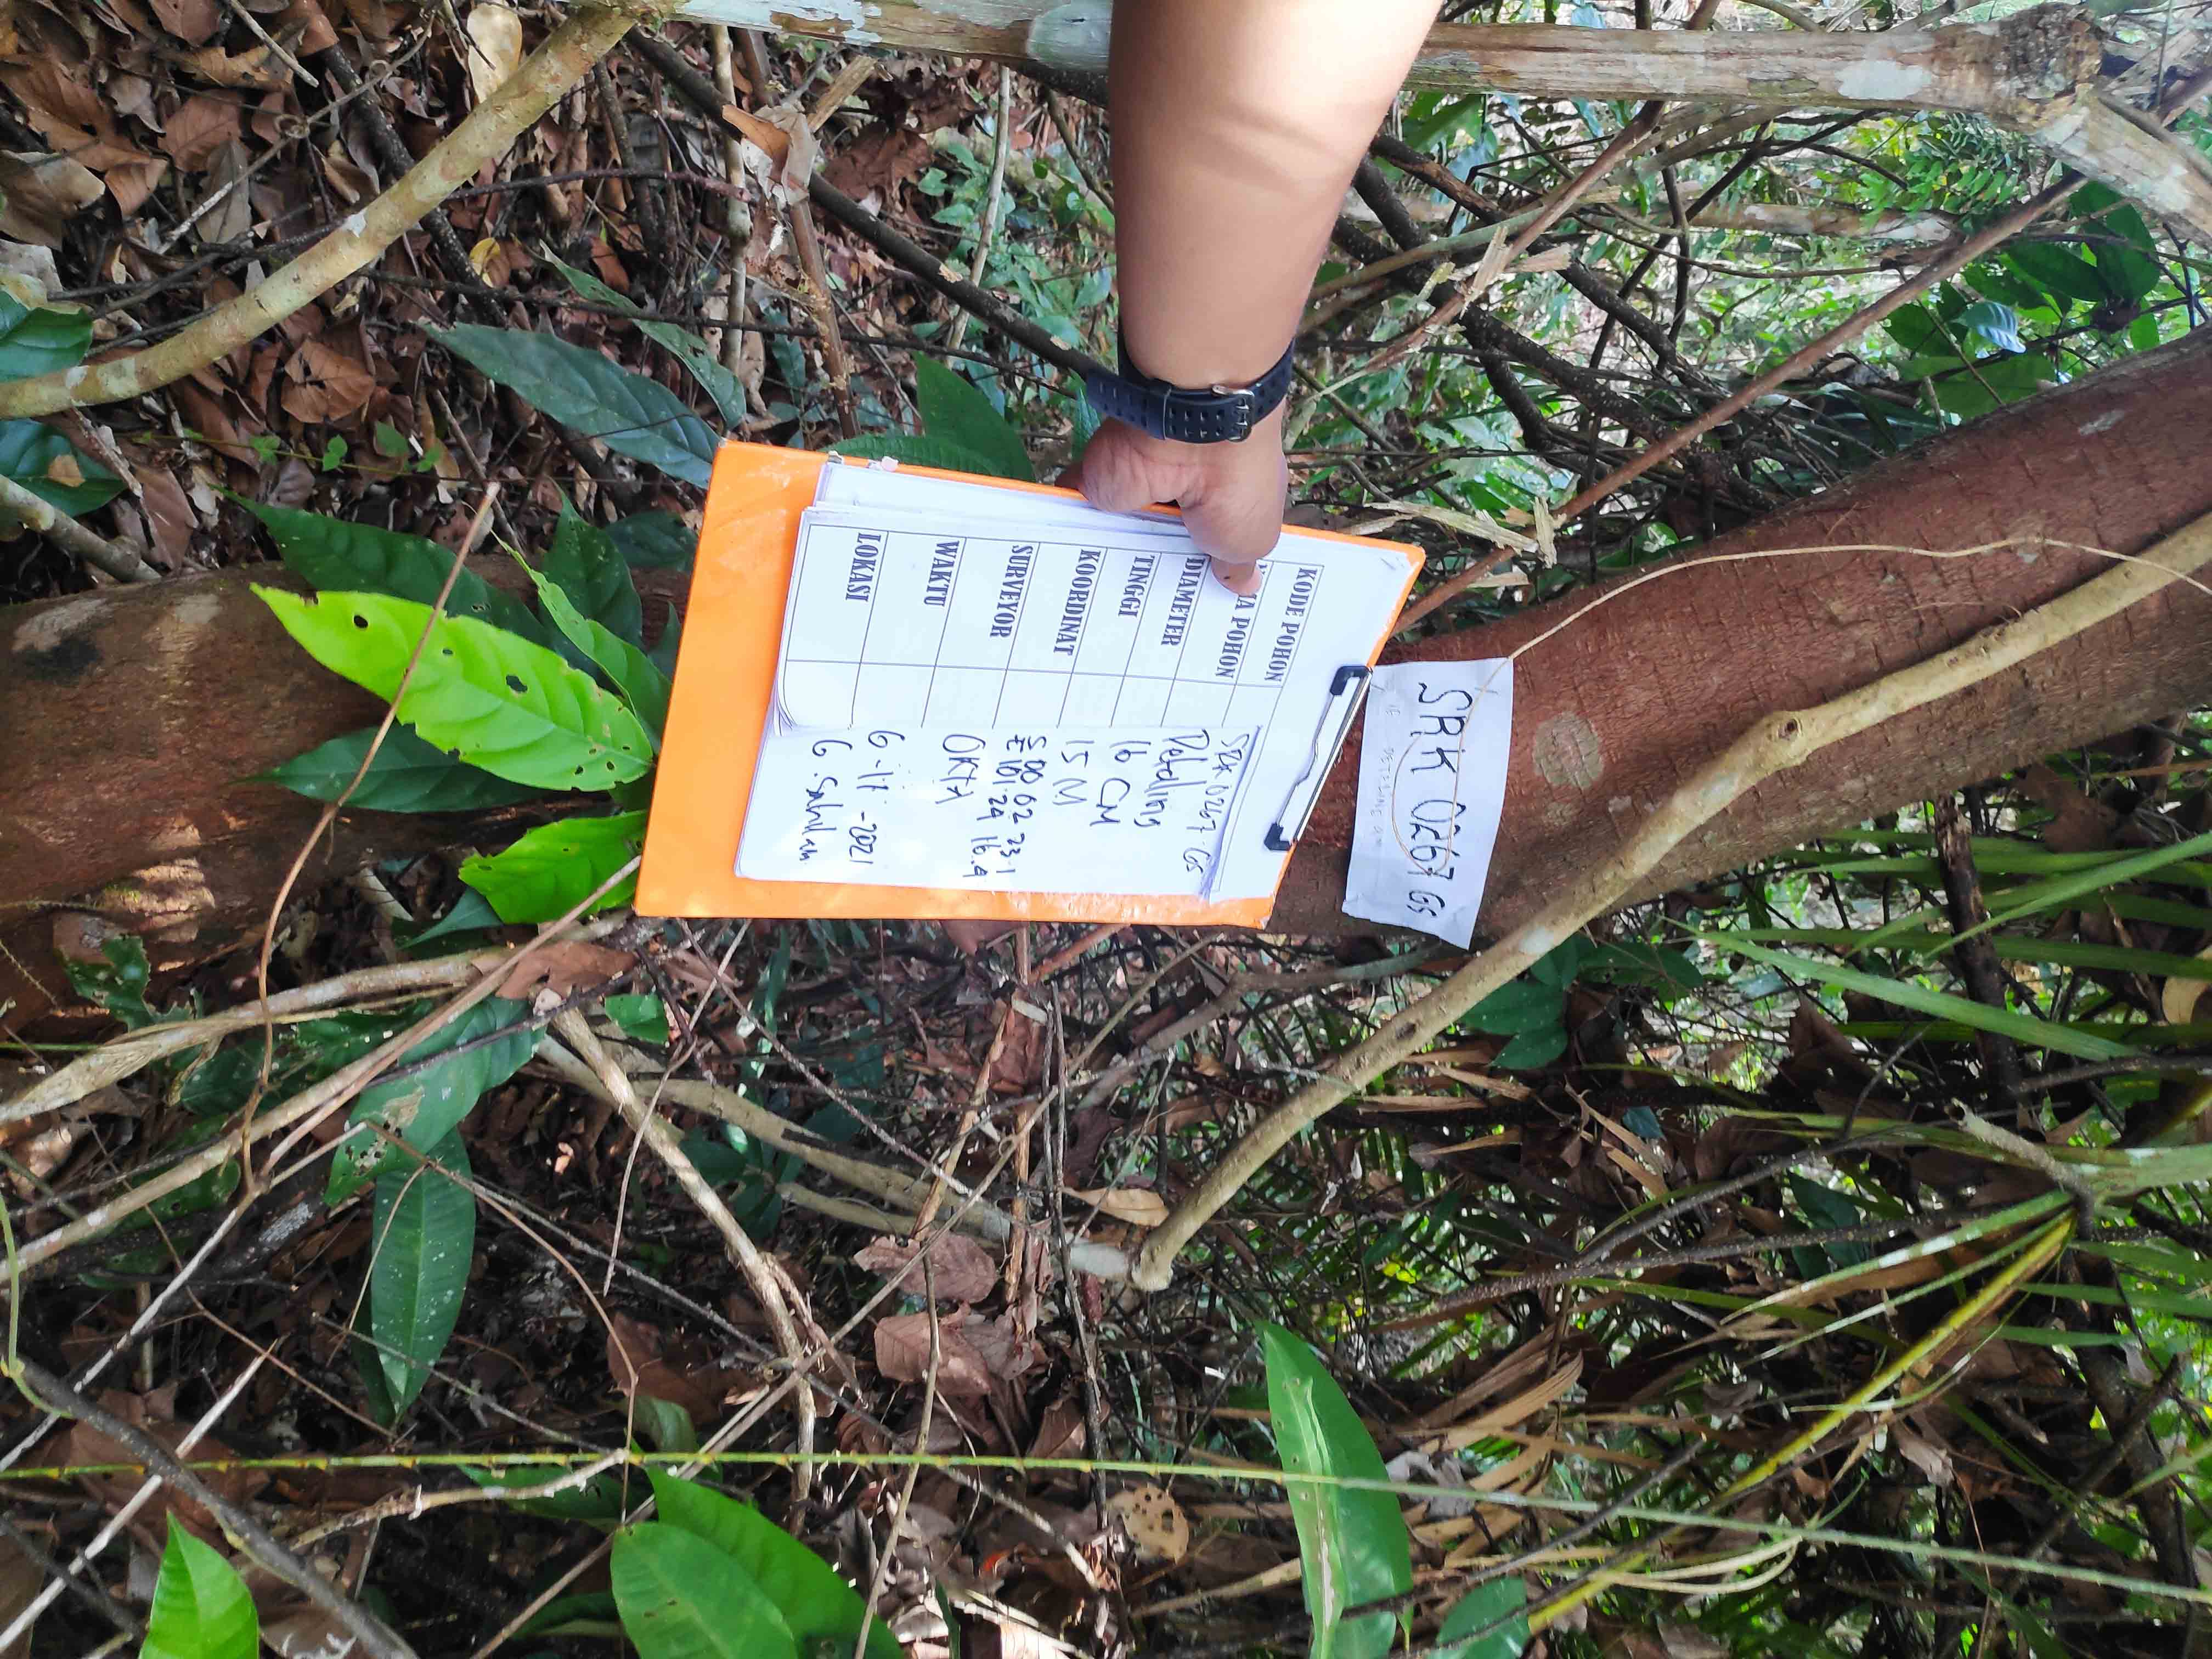 KODE POHON SRK 0267 GS
TA POHON Pebaling
DIAMETER 16 CM
TINGGI 15 M
KOORDINAT S 00 02 23.1
E 101.29 16.9
SURVEYOR OKTA
WAKTU 6-11-2021
LOKASI G.Sahilan
SRK 0267 GS